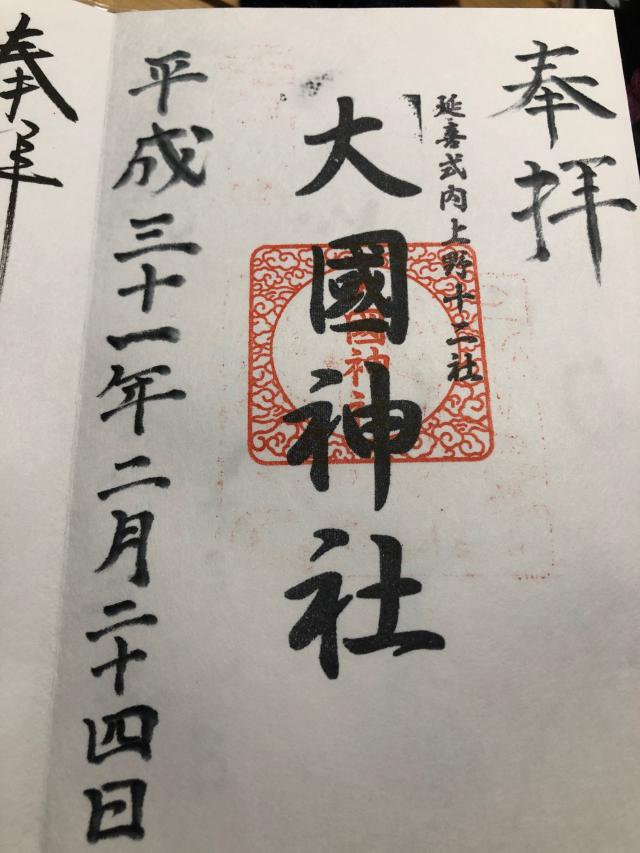 奉拝
延喜式内上野十二社
大國神社
平成三十一年二月二十四日
奉